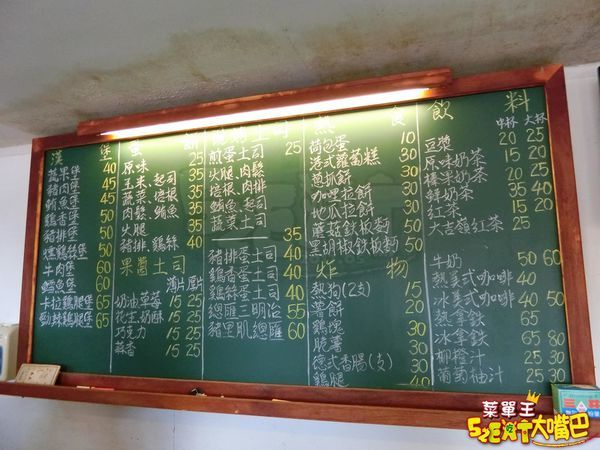 漢 堡
蔬果堡 40
豬肉堡 45
鮪魚堡 45
雞香堡 50
豬排堡 50
燻雞絲堡 50
牛肉堡 60
鱈魚堡 60
卡拉雞腿堡 65
勁辣雞腿堡 65
蛋 餅
原味 25
玉米 起司
蔬菜 培根
肉鬆 鮪魚
火腿
豬排 雞絲
35
果醬土司
薄片 厚片
奶油 草莓 15 25
花生 奶酥 15 25
巧克力 15 25
蒜香 15 25
土司
煎蛋土司 25
火腿 肉鬆
培根 豬肉
鮪魚 起司
蔬菜土司
35
豬排蛋土司 40
雞香蛋土司 40
雞絲蛋土司 40
總匯三明治 55
豬里肌總匯 60
熱 食
荷包蛋 10
港式蘿蔔糕 30
蔥抓餅 30
咖哩拉餅 30
地瓜拉餅 30
蘑菇鐵板麵 50
黑胡椒鐵板麵 50
炸 物
熱狗(2支) 15
薯餅 20
雞塊 30
脆薯 30
德式香腸(支) 30
雞腿 40
飲 料
中杯 大杯
豆漿 20 25
原味奶茶 15 20
榛果奶茶 20 25
鮮奶茶 35 40
紅茶 15 20
大吉嶺紅茶 25
牛奶 50 60
熱美式咖啡 40
冰美式咖啡 40 50
熱拿鐵 65
冰拿鐵 65 80
柳橙汁 25 30
葡萄柚汁 25 30
菜單王
520吃大嘴巴